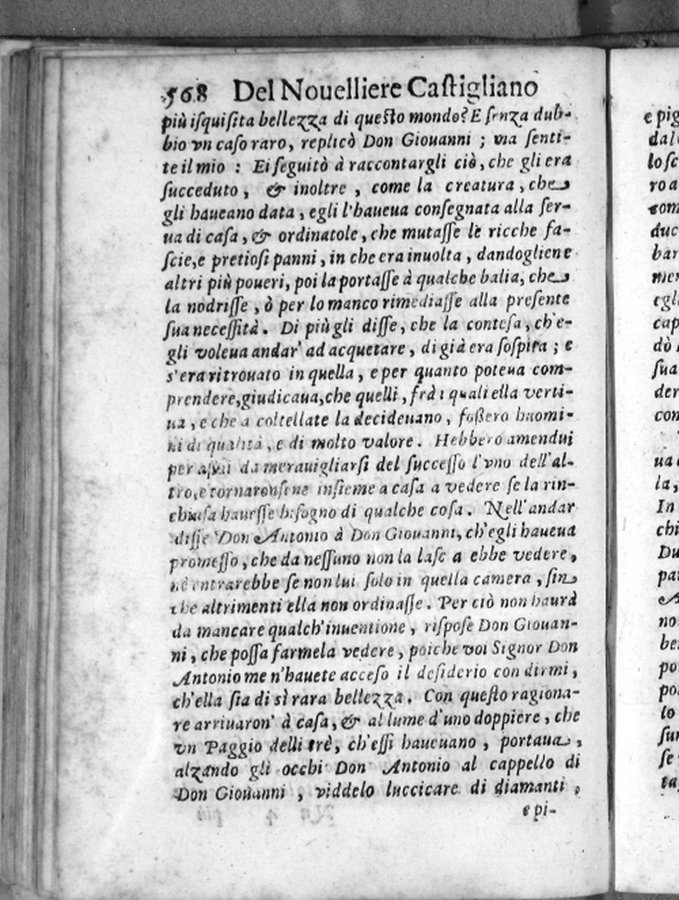 568 Del Nouelliere Castigliano
più isquisita bellezza di questo mondo? E senza dub-
bio vn caso raro, replicò Don Giouanni ; ma senti-
te il mio : Ei seguitò à raccontargli ciò, che gli era
succeduto, & inoltre, come la creatura, che
gli haueano data, egli l'haueua consegnata alla ser-
ua di casa, & ordinatole, che mutasse le ricche fa-
scie, e pretiosi panni, in che era inuolta, dandogliene
altri più poueri, poi la portasse à qualche balia, che
la nodrisse, ò per lo manco rimediasse alla presente
sua necessità. Di più gli disse, che la contesa, ch'e-
gli voleua andar' ad acquetare, di già era sospita ; e
s'era ritrouato in quella, e per quanto poteua com-
prendere, giudicaua, che quelli, frà i quali ella verti-
ua, e che a coltellate la decideuano, fossero huomi-
ni di qualità, e di molto valore. Hebbero amendui
per assai da merauigliarsi del successo l'vno dell'al-
tro, e tornaronsene insieme a casa a vedere se la rin-
chiusa hauesse bisogno di qualche cosa. Nell'andar
disse Don Antonio à Don Giouanni, ch'egli haueua
promesso, che da nessuno non la lasc a ebbe vedere,
nè entrarebbe se non lui solo in quella camera, sin
che altrimenti ella non ordinasse. Per ciò non haurà
da mancare qualch'inuentione, rispose Don Giouan-
ni, che possa farmela vedere, poiche voi Signor Don
Antonio me n'hauete acceso il desiderio con dirmi,
ch'ella sia di sì rara bellezza. Con questo ragiona-
re arriuaron' à casa, & al lume d'uno doppiere, che
vn Paggio delli trè, ch'essi haueuano, portaua,
alzando gli occhi Don Antonio al cappello di
Don Giouanni, viddelo luccicare di diamanti,
e pi-
e pig
dal
lo sc
ro a
com
duc
bar
mer
egli
cap
dò
sua
der
con
ua
la,
In
chi
Du
pa
no
be
po
po
lo
sur
se
ta